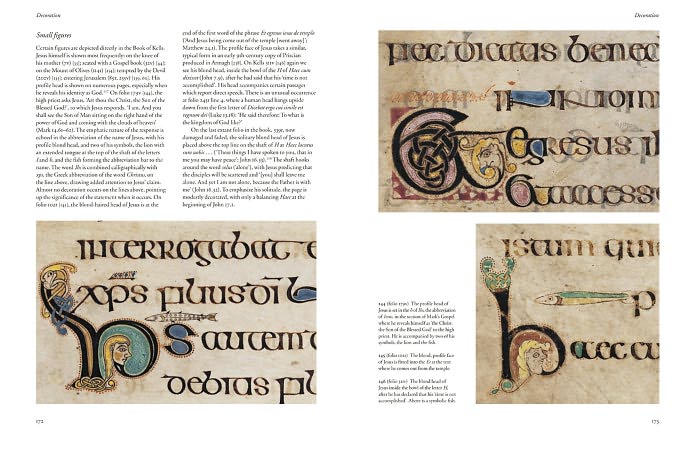 Decoration
Small figures
Certain figures are depicted directly in the Book of Kells.
Jesus himself is shown most frequently: on the knee of
his mother (7v) seated with a Gospel book (32v)
on the Mount of Olives (114r) tempted by the Devil
(202v) entering Jerusalem His
profile head is shown on numerous pages, especially when
he reveals his identity as God. On folio the
high priest asks Jesus, 'Art thou the Christ, the Son of the
Blessed God?', to which Jesus responds, 'I am. And you
shall see the Son of Man sitting on the right hand of the
power of God and coming with the clouds of heaven'
(Mark 14.61–62). The emphatic nature of the response is
echoed in the abbreviation of the name of Jesus, with his
profile blond head, and two of his symbols, the lion with
an extended tongue at the top of the shaft of the letters
and the fish forming the abbreviation bar to the
name. The word is combined calligraphically with
xps, the Greek abbreviation of the word Christus, on
the line above, drawing added attention to Jesus' claim.
Almost no decoration occurs on the lines above, pointing
up the significance of the statement when it occurs. On
folio the blond-haired head of Jesus is at the
end of the first word of the phrase Et egresus iesus de templo
('And Jesus being come out of the temple [went away]';
Matthew 24.1). The profile face of Jesus takes a similar,
typical form in an early 9th-century copy of Priscian
produced in Armagh On Kells again we
see his blond head, inside the bowl of the H of Haec cum
dixisset (John 7.9), after he had said that his 'time is not
accomplished'. His head accompanies certain passages
which report direct speech. There is an unusual occurrence
at folio line 4, where a human head hangs upside
down from the first letter of Dicebat ergo cui simile est
regnum dei (Luke 13.18): 'He said therefore: To what is
the kingdom of God like?'
On the last extant folio in the book, now
damaged and faded, the solitary blond head of Jesus is
placed above the top line on the shaft of H at Haec locutus
sum uobis . . . ('These things I have spoken to you, that in
me you may have peace'; John 16.33). The shaft hooks
around the word solus ('alone'), with Jesus predicting that
the disciples will be scattered and '[you] shall leave me
alone. And yet I am not alone, because the Father is with
me' (John 16.32). To emphasise his solitude, the page is
modestly decorated, with only a balancing Haec at the
beginning of John 17.1.
interrogabat
xps filius di
autem
debras
172
Decoration
benec
egresus
244 (folio The profile head of
Jesus is set in the of the abbreviation
of Iesus, in the section of Mark's Gospel
where he reveals himself as 'the Christ,
the Son of the Blessed God' to the high
priest. He is accompanied by two of his
symbols, the lion and the fish.
245 (folio The blond, profile face
of Jesus is fitted into the Et at the text
where he comes out from the temple.
246 (folio The blond head of
Jesus inside the bowl of the letter H,
after he has declared that his 'time is not
accomplished'. Above is a symbolic fish.
haec cu
173